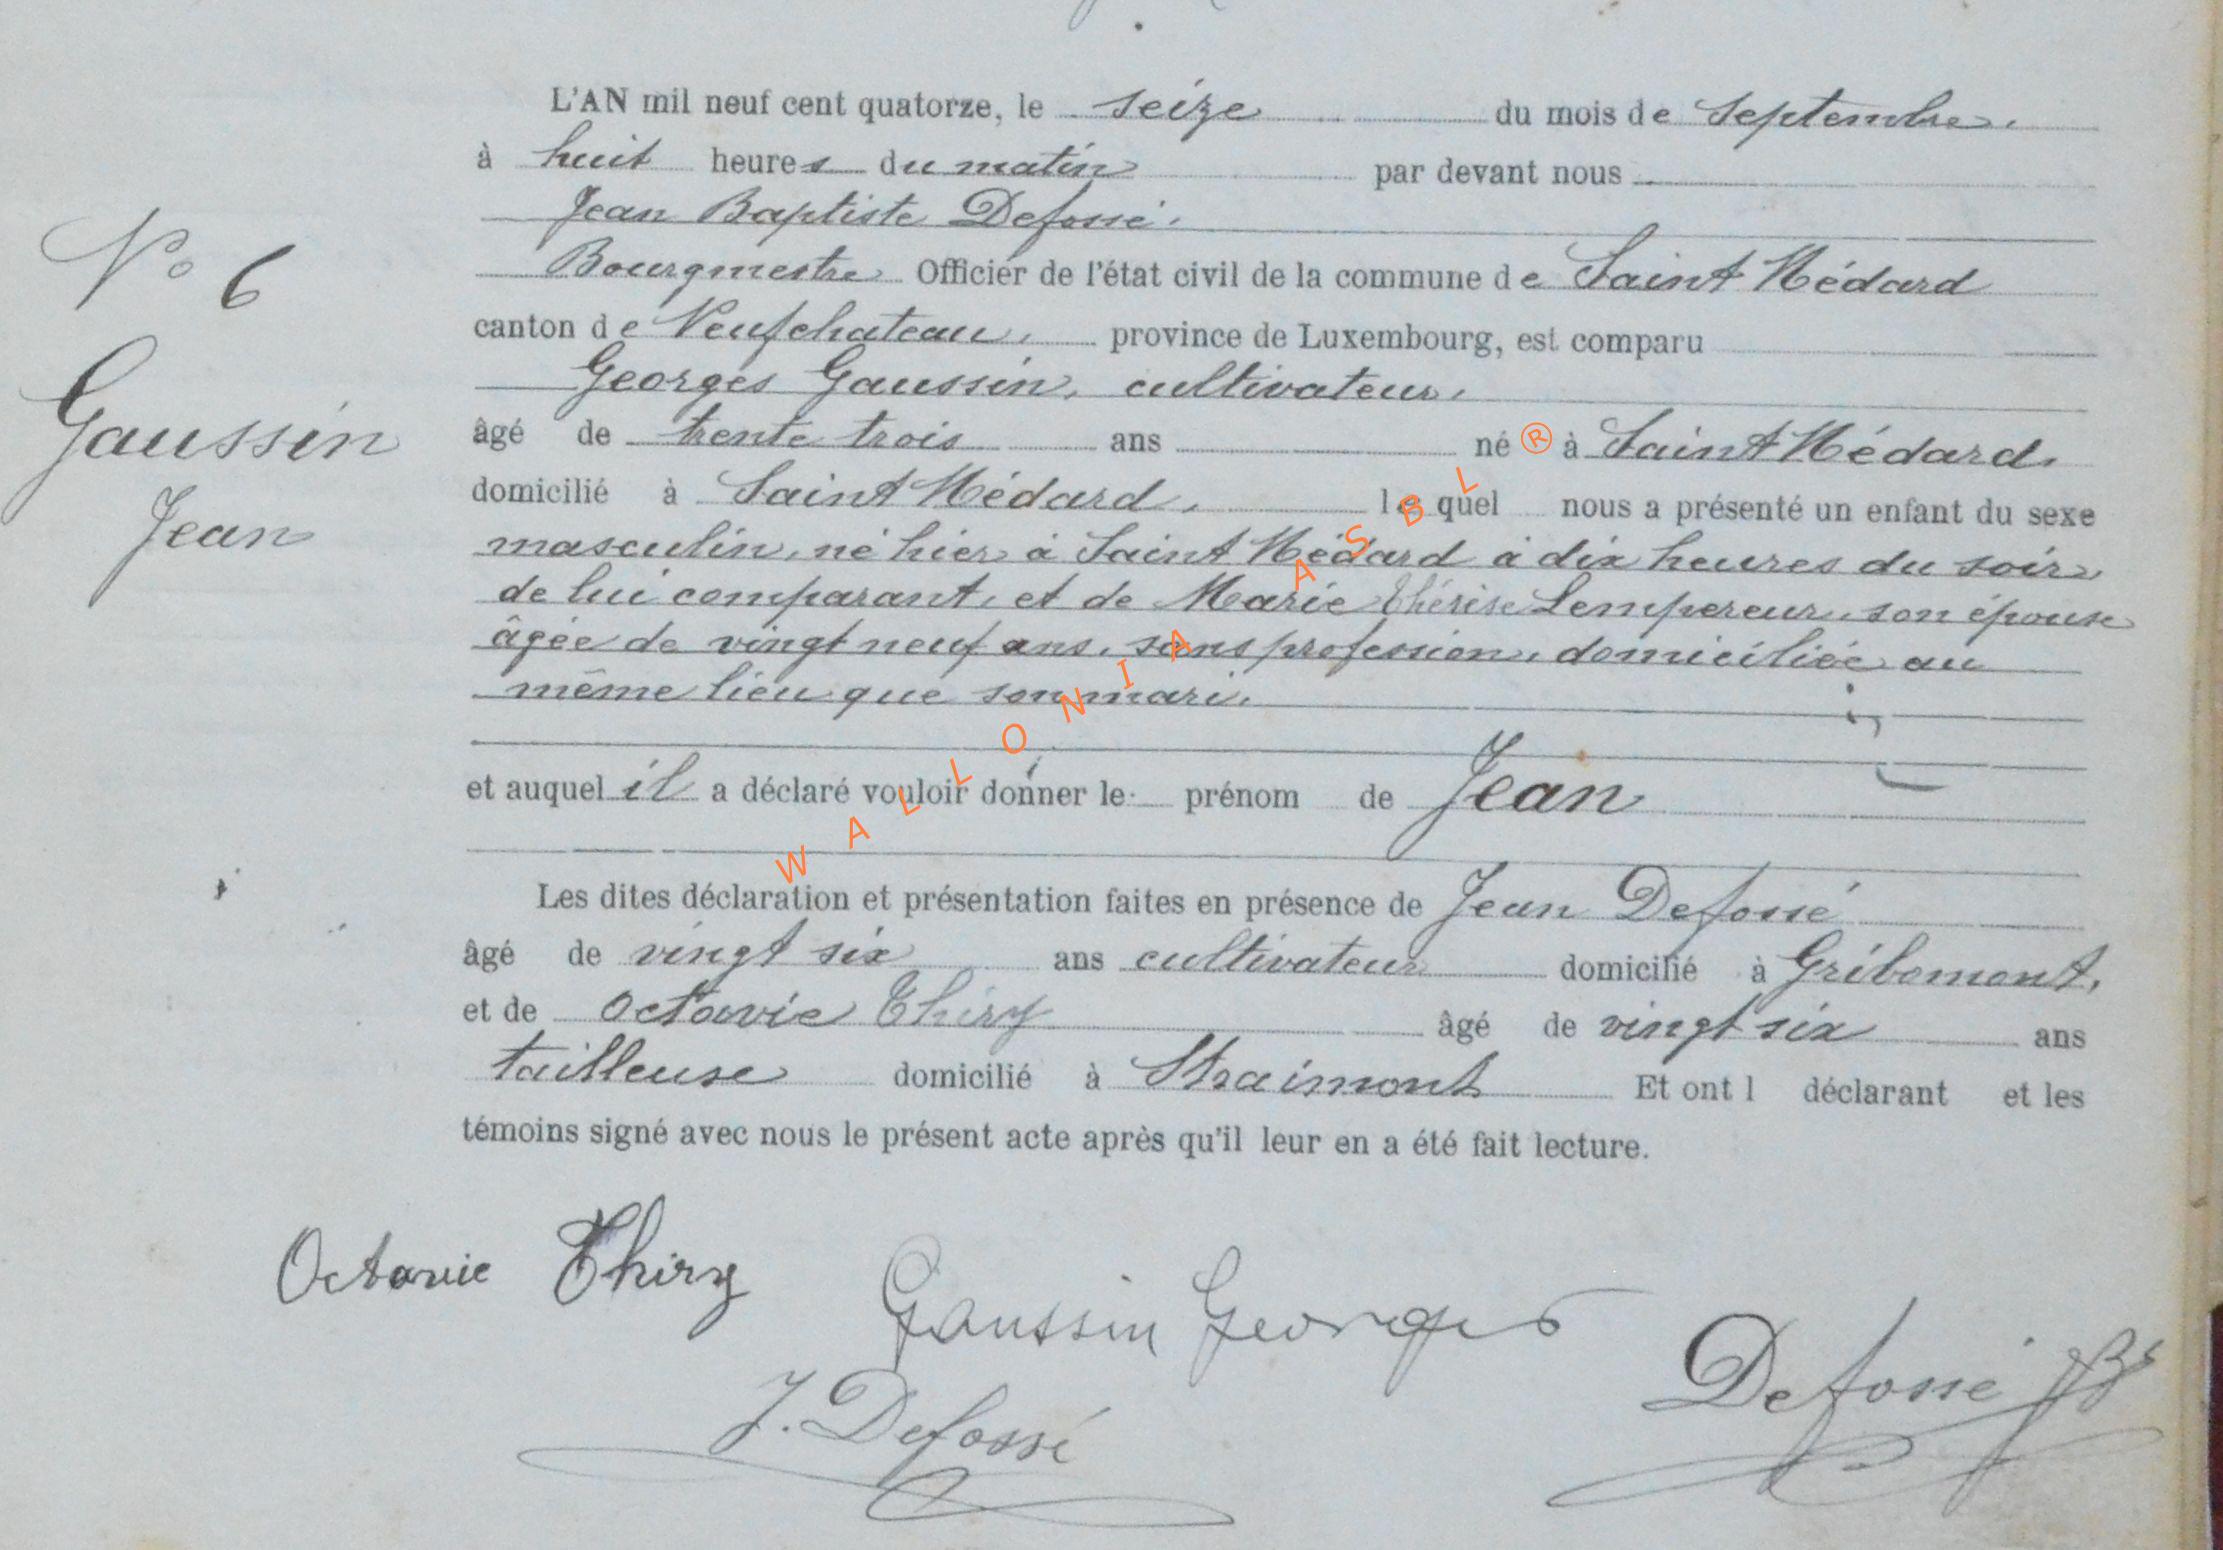 L'AN mil neuf cent quatorze, le seize du mois de Septembre.
à huit heures du matin par devant nous
Jean Baptiste Defossé.
Bourgmestre Officier de l'état civil de la commune de Saint Médard
canton de Neufchateau, province de Luxembourg, est comparu
Georges Gaussin, cultivateur,
âgé de trente trois ans né à Saint Médard,
domicilié à Saint Médard, lequel nous a présenté un enfant du sexe
masculin, né hier à Saint Médard à dix heures du soir,
de lui comparant, et de Marie Thérèse Lempereur, son épouse
âgée de vingt neuf ans, sans profession, domiciliée au
même lieu que son mari.
et auquel il a déclaré vouloir donner le prénom de Jean
Les dites déclaration et présentation faites en présence de Jean Defossé
âgé de vingt six ans cultivateur domicilié à Gribomont,
et de Octavie Thiry âgé de vingt six ans
tailleuse domicilié à Straimont Et ont l déclarant et les
témoins signé avec nous le présent acte après qu'il leur en a été fait lecture.
No 6
Gaussin
Jean
Octavie Thiry
Gaussin Georges
J. Defossé
Defossé JB
WALLONIA ASBL ®